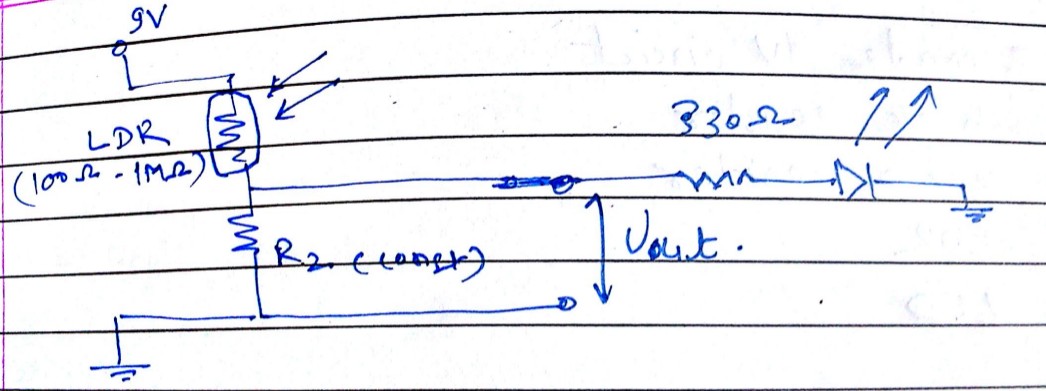 9V
330Ω
LDR
(100Ω - 1MΩ)
Vout.
R2. (const)